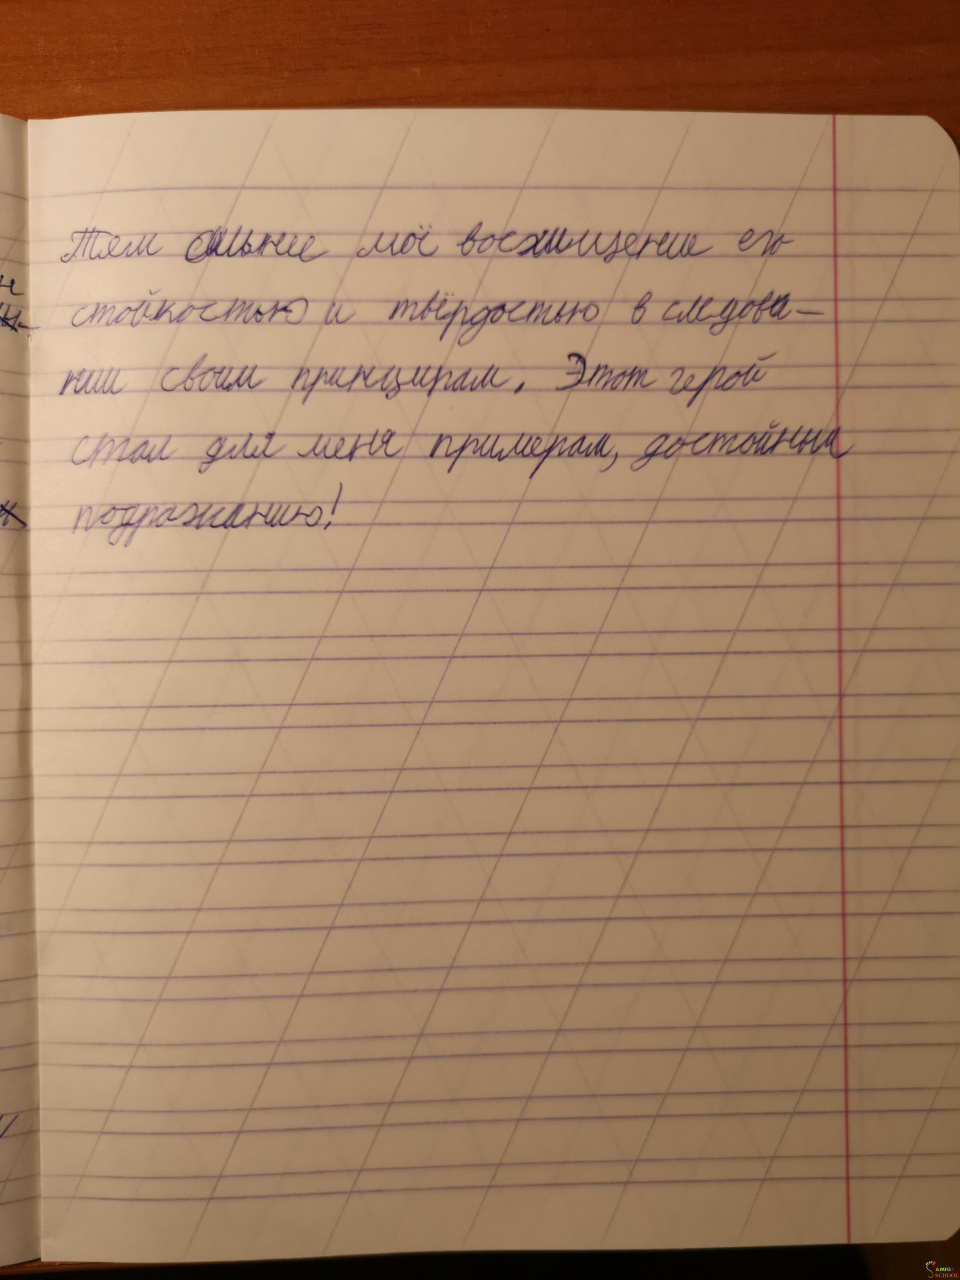 Тем сильнее моё восхищение его
стойкостью и твёрдостью в следова-
нии своим принципам. Этот герой
стал для меня примерам, достойным
подражанию!
AMIGO
SCHOOL